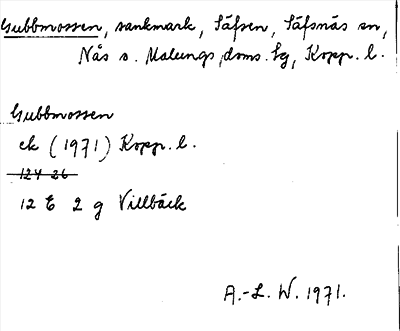 Gubbmossen, sankmark, Säfsen, Säfsnäs sn,
Nås o. Malungs doms. fg, Kopp. l.
Gubbmossen
ek (1971) Kopp. l.
124 26
12 E 2 g Villbäck
A.-L. W. 1971.